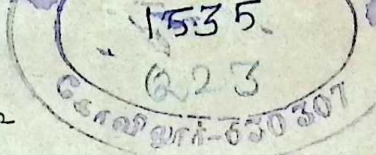 1535
Q23
கோவிலூர்-630307